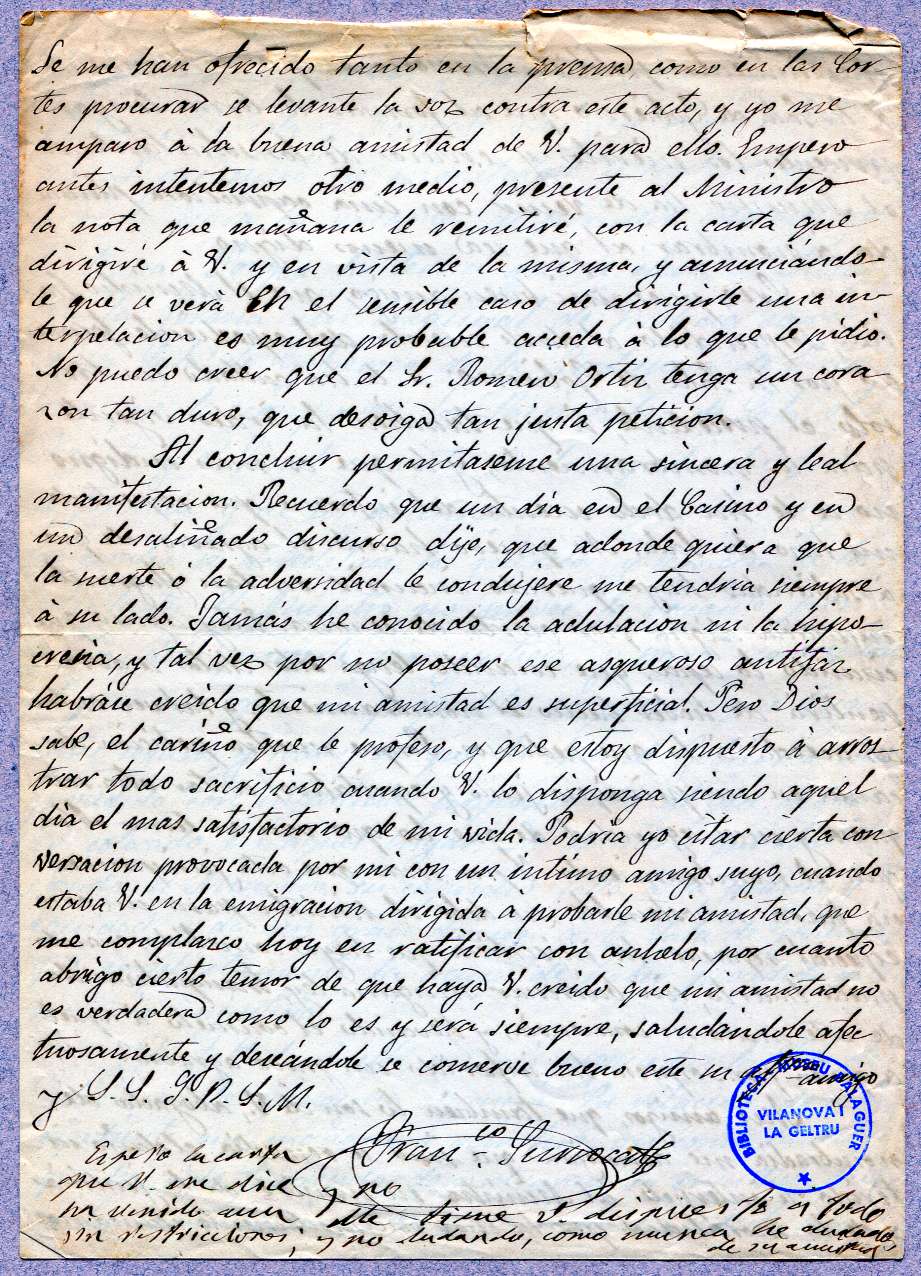 Se me han ofrecido tanto en la prensa como en las Cor-
tes procurar se levante la voz contra este acto, y yo me
amparo à la buena amistad de V. para ello. Empero
antes intentemos otro medio, presente al Ministro
la nota que mañana le remitiré, con la carta que
dirigiré à V. y en vista de la misma, y anunciándo-
le que se verá en el sensible caso de dirigirle una in-
terpelacion es muy probable acceda à lo que le pidio.
No puedo creer que el Sr. Romero Ortiz tenga un cora
zon tan duro, que desoiga tan justa peticion.
Al concluir permitaseme una sincera y leal
manifestacion. Recuerdo que un dia en el Casino y en
un desaliñado discurso dije, que adonde quiera que
la suerte ó la adversidad le condujere me tendria siempre
à su lado. Jamás he conocido la adulacion ni la hipo-
cresia, y tal vez por no poseer ese asqueroso antifaz
habráse creido que mi amistad es superficial. Pero Dios
sabe, el cariño que le profeso, y que estoy dispuesto à arros-
trar todo sacrificio cuando V. lo disponga siendo aquel
dia el mas satisfactorio de mi vida. Podria yo citar cierta con
versacion provocada por mi con un intimo amigo suyo, cuando
estaba V. en la emigracion dirigida à probarle mi amistad, que
me complazco hoy en ratificar con anhelo, por cuanto
abrigo cierto temor de que haya V. creido que mi amistad no
es verdadera como lo es y será siempre, saludándole afec
tuosamente y deseándole se conserve bueno este su aff.º amigo
y S. S. Q. B. S. M.
Fran.co Surrocatti
Espero la carta
que V. me dice
sin restricciones, y no dudando, como nunca he dudado
de su amistad
BIBLIOTECA MUSEU BALAGUER
VILANOVA I
LA GELTRU